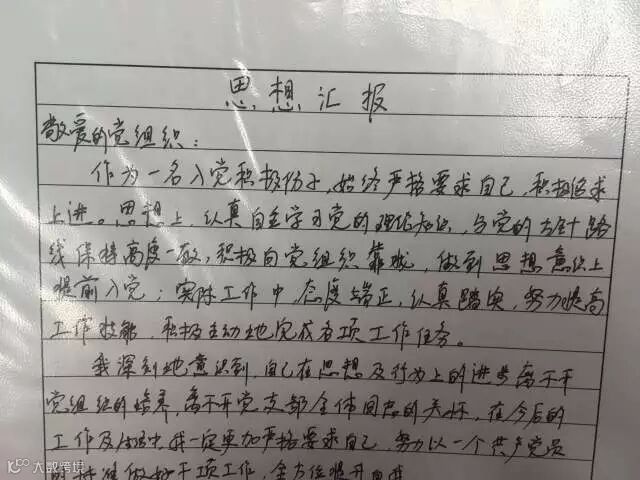 思想汇报
敬爱的党组织：
作为一名入党积极份子，始终严格要求自己，积极追求
上进。思想上，认真自主学习党的理论知识，与党的方针路
线保持高度一致，积极向党组织靠拢，做到思想意识上
提前入党；实际工作中，态度端正，认真踏实，努力提高
工作技能，积极主动地完成各项工作任务。
我深刻地意识到，自己在思想及行为上的进步离不开
党组织的培养，离不开党支部全体同志的关怀，在今后的
工作及生活中，我一定更加严格要求自己，努力以一个共产党员
的标准做好干项工作，全方位提升自我
大数跨境